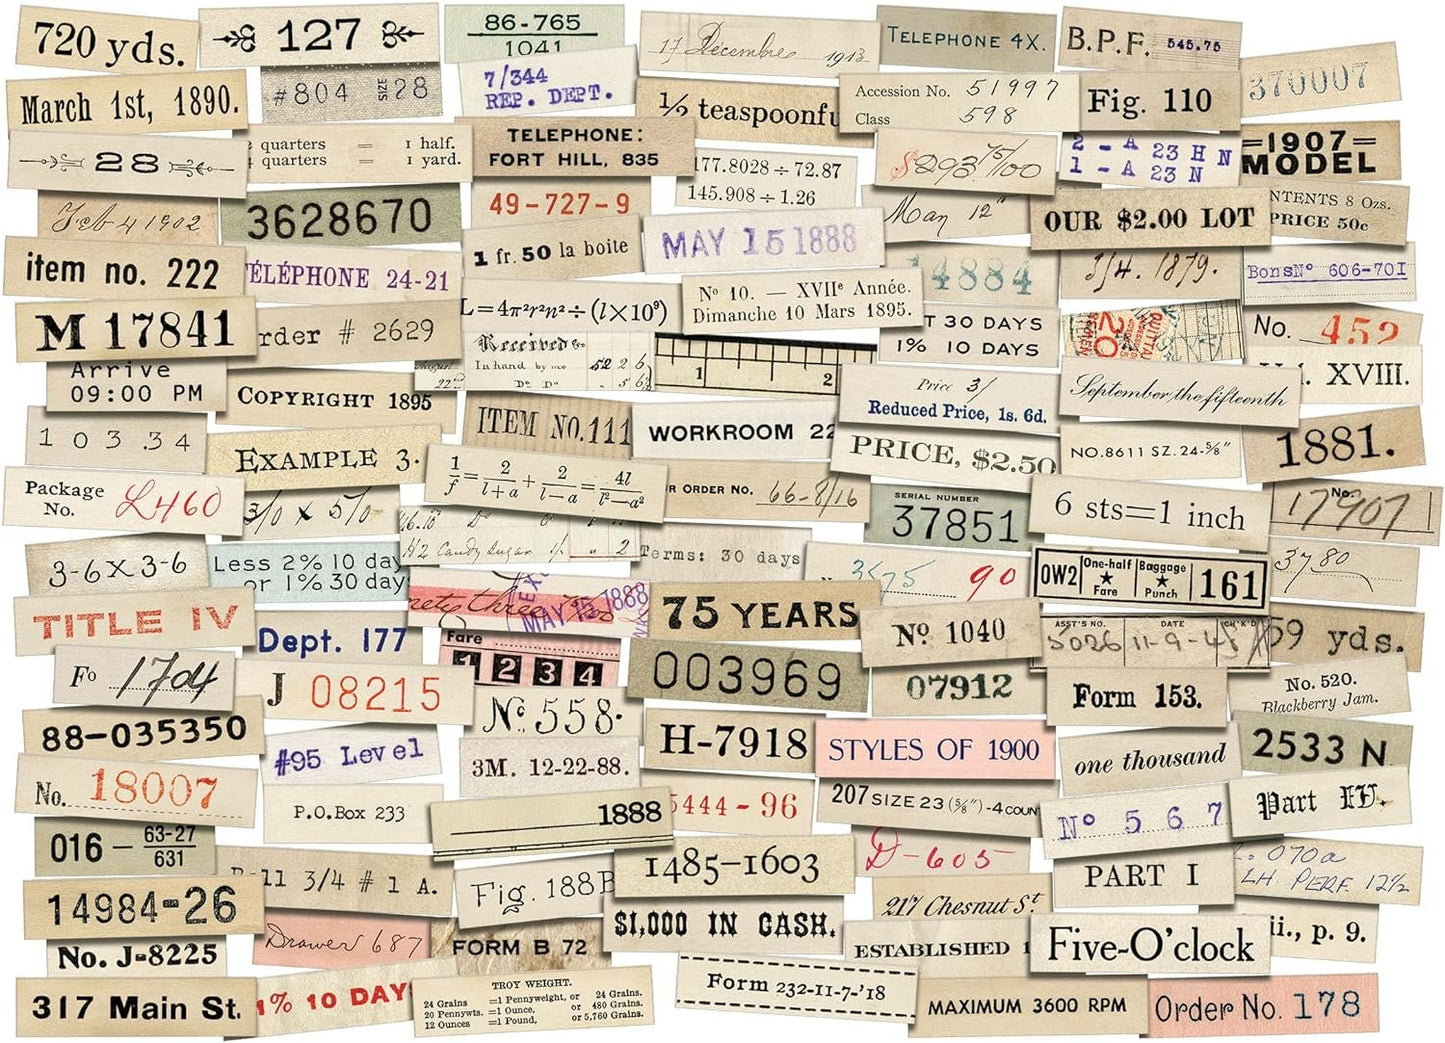 720 yds.
127
86-765
1041
17 Decembre 1913
TELEPHONE 4X.
B.P.F. 545.75
370007
March 1st, 1890.
#804 SIZE 28
7/344
REP. DEPT.
1/2 teaspoonfu
Accession No. 51997
Class 598
Fig. 110
=1907=
MODEL
28
quarters = 1 half.
quarters = 1 yard.
TELEPHONE:
FORT HILL, 835
177.8028 ÷ 72.87
145.908 ÷ 1.26
$293 75/100
2 - A 23 H N
1 - A 23 N
NTENTS 8 Ozs.
PRICE 50c
Feb 4 1902
3628670
49-727-9
MAY 15 1888
May 12
OUR $2.00 LOT
item no. 222
ÉLÉPHONE 24-21
1 fr. 50 la boite
4884
3/4. 1879.
Bons Nº 606-701
M 17841
rder # 2629
L=4π²r²n²÷(l×10⁹)
Nº 10. — XVIIe Année.
Dimanche 10 Mars 1895.
T 30 DAYS
1% 10 DAYS
No. 452
Arrive
09:00 PM
COPYRIGHT 1895
Received
In hand by me 52 2 6
Do Do - 5 6
1 2
Price 3/
Reduced Price, 1s. 6d.
September the fifteenth
XVIII.
103.34
EXAMPLE 3.
ITEM NO. 111
WORKROOM 22
PRICE, $2.50
NO.8611 SZ. 24-5/8"
1881.
Package
No. £460
3/0 x 5/0
1/f = 2/(l+a) + 2/(l−a) = 4l/(l²−a²)
R ORDER NO. 66-8/16
SERIAL NUMBER
37851
6 sts=1 inch
No. 17907
3-6 X 3-6
Less 2% 10 day
or 1% 30 day
#2 Candy Sugar 1/ " 2
Terms: 30 days
3575 90
OW2 One-half Fare Baggage Punch 161
3780
TITLE IV
Dept. 177
rety three
MAY 15 1888
75 YEARS
Nº 1040
ASS'T'S NO. DATE CH'K'D
5026 11-9-45
59 yds.
Fo 1704
J 08215
Fare
1 2 3 4
003969
07912
Form 153.
No. 520.
Blackberry Jam.
88-035350
#95 Level
Nº 558.
H-7918
STYLES OF 1900
one thousand
2533 N
No. 18007
P.O.Box 233
3M. 12-22-88.
1888
5444-96
207 SIZE 23 (5/8")-4 COUN
Nº 567
Part IV.
016 - 63-27
631
ll 3/4 # 1 A.
Fig. 188B
1485-1603
D-605
PART I
070a
LH. PERF. 12½
14984-26
Drawer 687
FORM B 72
$1,000 IN CASH.
217 Chesnut St.
ESTABLISHED 1
Five-O'clock
ii., p. 9.
No. J-8225
317 Main St.
1% 10 DAY
TROY WEIGHT.
24 Grains =1 Pennyweight, or 24 Grains.
20 Pennywts. =1 Ounce, or 480 Grains.
12 Ounces =1 Pound, or 5,760 Grains.
Form 232-11-7-'18
MAXIMUM 3600 RPM
Order No. 178